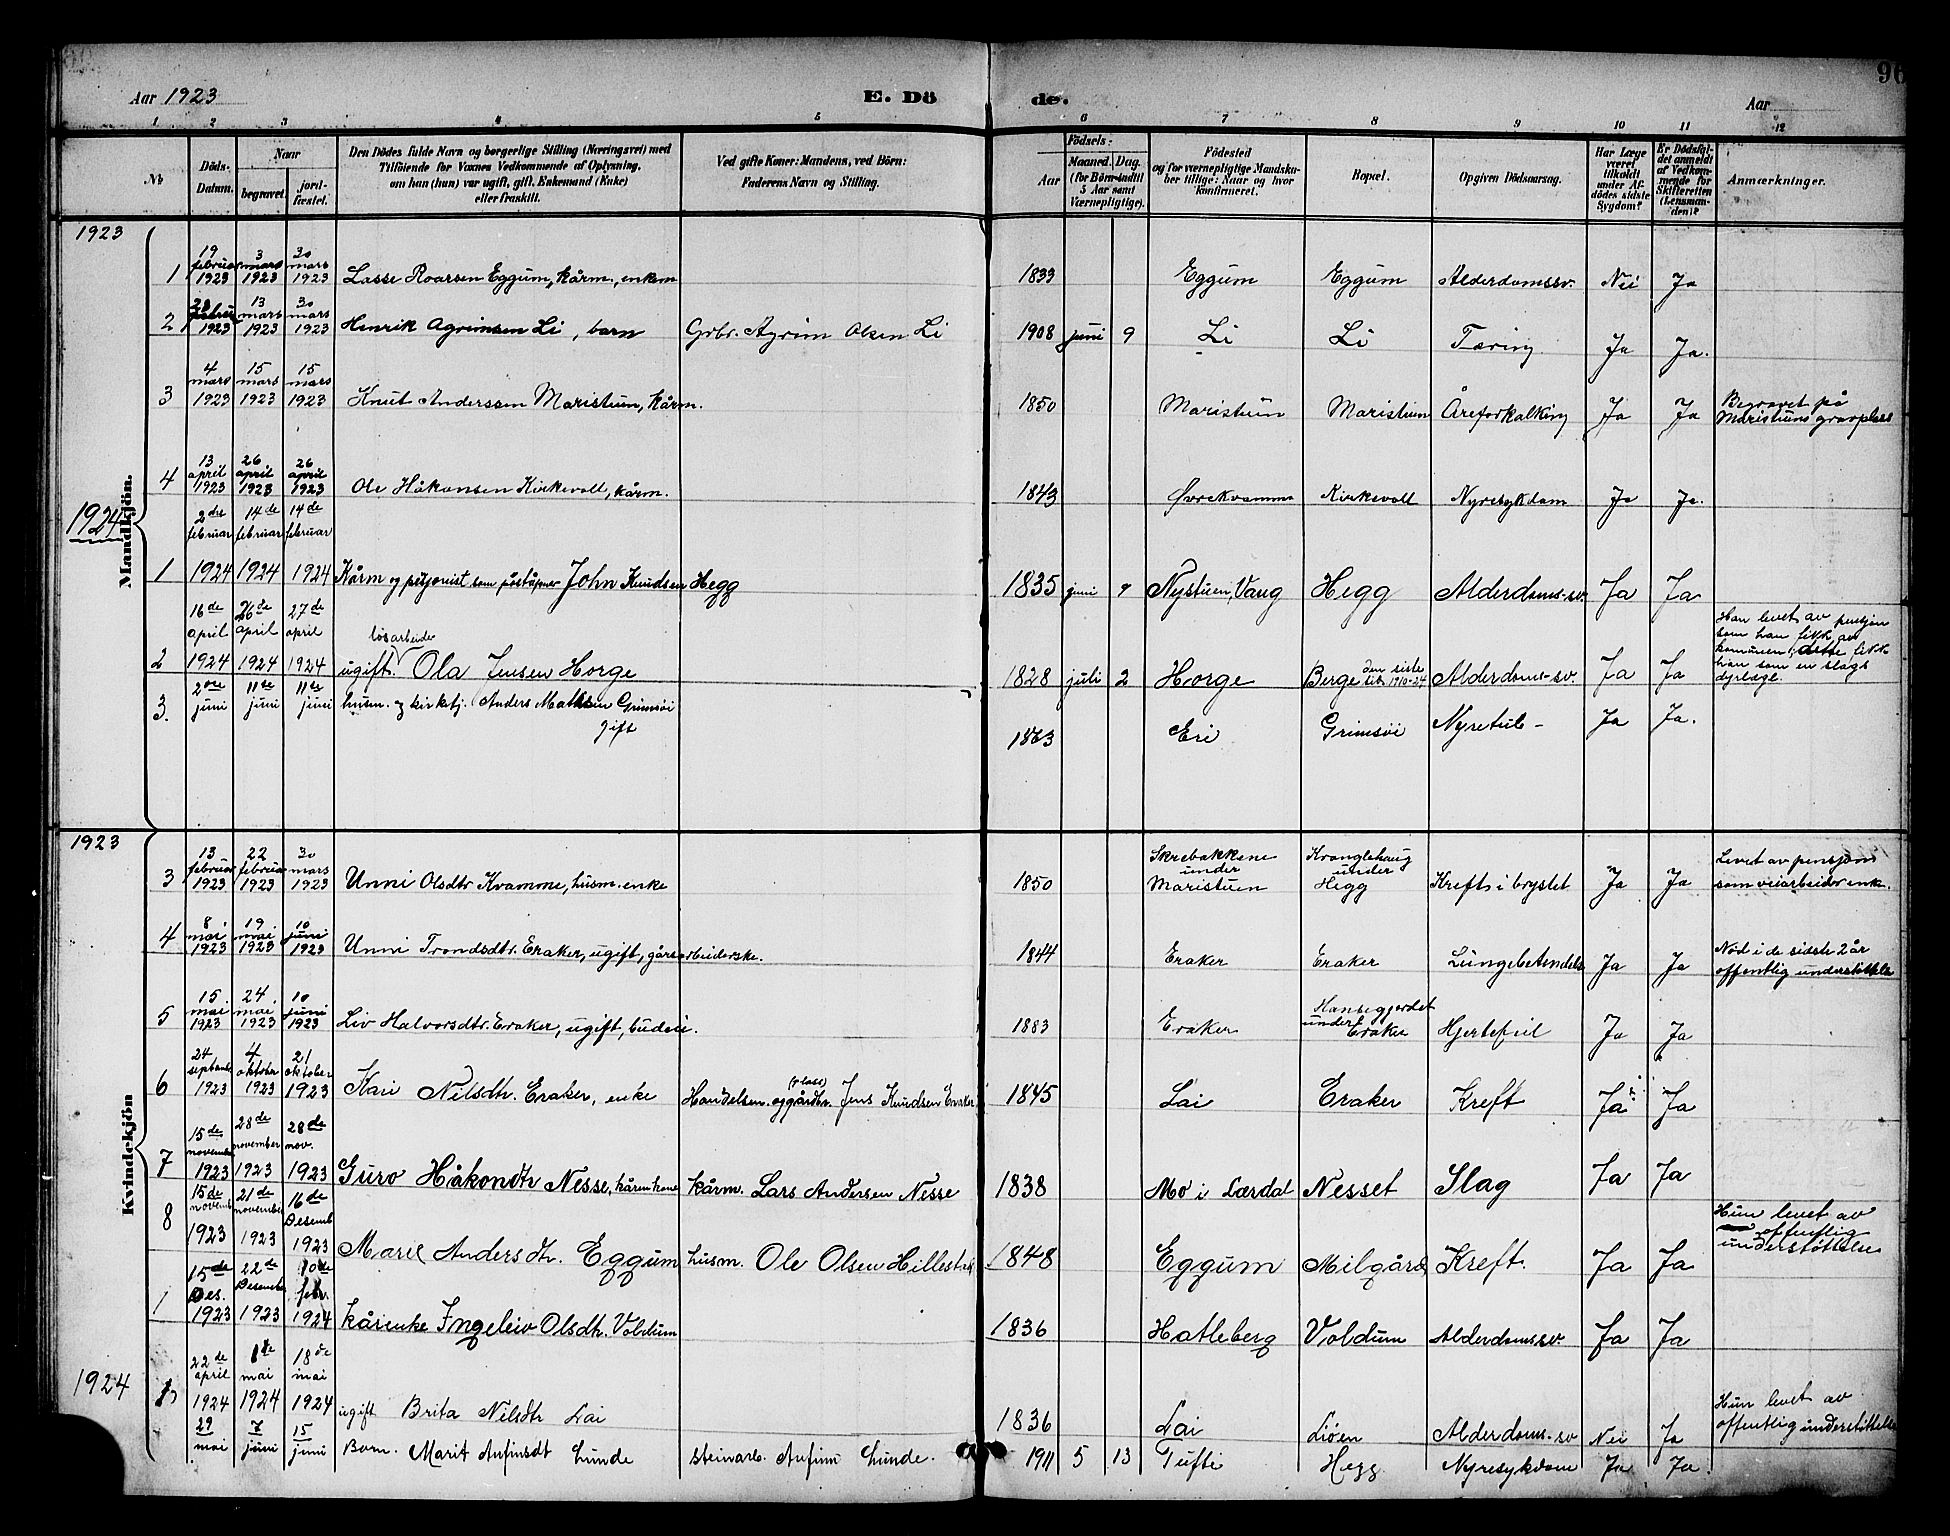 96
Aar 1923
E. Dö
de.
Aar
1 2 3 4 5 6 7 8 9 10 11 12
No
Döds-Datum.
Naar
begravet.
jord-fæstet.
Den Dödes fulde Navn og borgerlige Stilling (Næringsvei) med
Tilföiende for Voxnes Vedkommende af Oplysning,
om han (hun) var ugift, gift, Enkemand (Enke)
eller fraskilt.
Ved gifte Koner: Mandens, ved Börn:
Faderens Navn og Stilling.
Födsels:
Aar
Maaned. Dag.
(for Börn indtil
5 Aar samt
Værnepligtige).
Födested
og for værnepligtige Mandska-
ber tillige: Naar og hvor
konfirmeret.
Bopæl.
Opgiven Dödsaarsag.
Har Læge
været
tilkaldt
under Af-
dödes sidste
Sygdom?
Er Dödsfal-
det anmeldt
af Vedkom-
mende for
Skifteretten
(Lensman-
den)?
Anmærkninger.
Mandkjön.
1923
1 19 februar 1923 3 mars 1923 30 mars 1923 Lasse Roarsen Eggum, kårm., enkem 1833 Eggum Eggum Alderdomssv. Nei Ja
2 28 februar 1923 13 mars 1923 30 mars 1923 Henrik Agrimsen Li, barn Grbr. Agrim Olsen Li 1908 juni 9 Li Li Tæring Ja Ja.
3 4 mars 1923 15 mars 1923 15 mars 1923 Knut Anderssen Maristuen, kårm. 1850 Maristuen Maristuen Åreforkalking Ja Ja Begravet på
Maristuens gravplass
4 13 april 1923 26 april 1923 26 april 1923 Ole Håkonsen Kirkevoll, kårm. 1843 Øvrekvamme Kirkevoll Nyresykdom Ja Ja.
1924
1 2dre februar 1924 14de februar 1924 14de februar 1924 Kårm og pensjonist som poståpner John Knudsen Hegg 1835 juni 9 Nystuen, Vang Hegg Alderdoms-sv. Ja Ja
2 16de april 1924 26de april 1924 27de april 1924 ugift. løsarbeider Ola Jensen Horge 1828 juli 2 Horge Berge den siste tid 1910-24 Alderdoms-sv. Ja Ja Han levet av pensjon
som han fikk av
komunen; dette fikk
han som en slags
dyrlæge.
3. 2dre juni 11de juni 11de juni husm. og kirketj. (Anders Mathsen Grimsøi
gift 1863 Eri Grimsøi Nyretub- Ja Ja.
Kvindekjön
1923
3 13 februar 1923 22 februar 1923 30 mars 1923 Unni Olsdtr Kvamme, husm.enke 1850 Skrebakkene under Maristuen Kranglehaug under Hegg Kreft i brystet Ja Ja Levet av pensjon
som veiarbeider enk.
4 8 mai 1923 19 mai 1923 10 juni 1923 Unni Trondsdtr. Eraker, ugift, gårsarbeiderske. 1844 Eraker Eraker Lungebetendels Ja Ja Nød i de sidste 2 år
offentlig understøttelse
5 15. mai 1923 24. mai 1923 10 juni 1923 Liv Halvorsdtr. Eraker, ugift, budeie. 1883 Eraker Hansegjerdet under Eraker Hjertefeil Ja Ja
6 24 septembr 1923 4 oktober 1923 21 oktober 1923 Kari Nilsdtr. Eraker, enke Handelsm. og (plass) gårdbr. Jens Knudsen Eraker 1845 Lai Eraker Kreft Ja Ja
7 15de november 1923 28de november 1923 28de nov. 1923 Guro Håkondtr Nesse, kårenkone kårm. Lars Andersen Nesse 1838 Mo i Lærdal Nesset Slag Ja Ja
8 15de novemb 1923 21de november 1923 16de Desemb 1923 Marie Andersdtr. Eggum husm. Ole Olsen Hillestad 1848 Eggum Milgård Kreft. Ja Ja Hun levet av
offentlig
understøttelse
1 15de Des. 1923 22de Desember 1923 10de febr. 1924 kårenke Ingeleiv Olsdtr. Voldum 1836 Hatleberg Voldum Alderdomssv. Ja Ja
1924
22de april 1924 1ste mai 1924 18de mai 1924 ugift Brita Nilsdtr Lai 1836 Lai Liøen Alderdoms-sv Nei Ja Hun levet av
offentlig understøttelse
29 mai 7 juni 15 juni Barn. Marit Anfinsdt Lunde steinarb. Anfinn Lunde. 1911 5 13 Tufte Hegg Nyresykdom Ja Ja